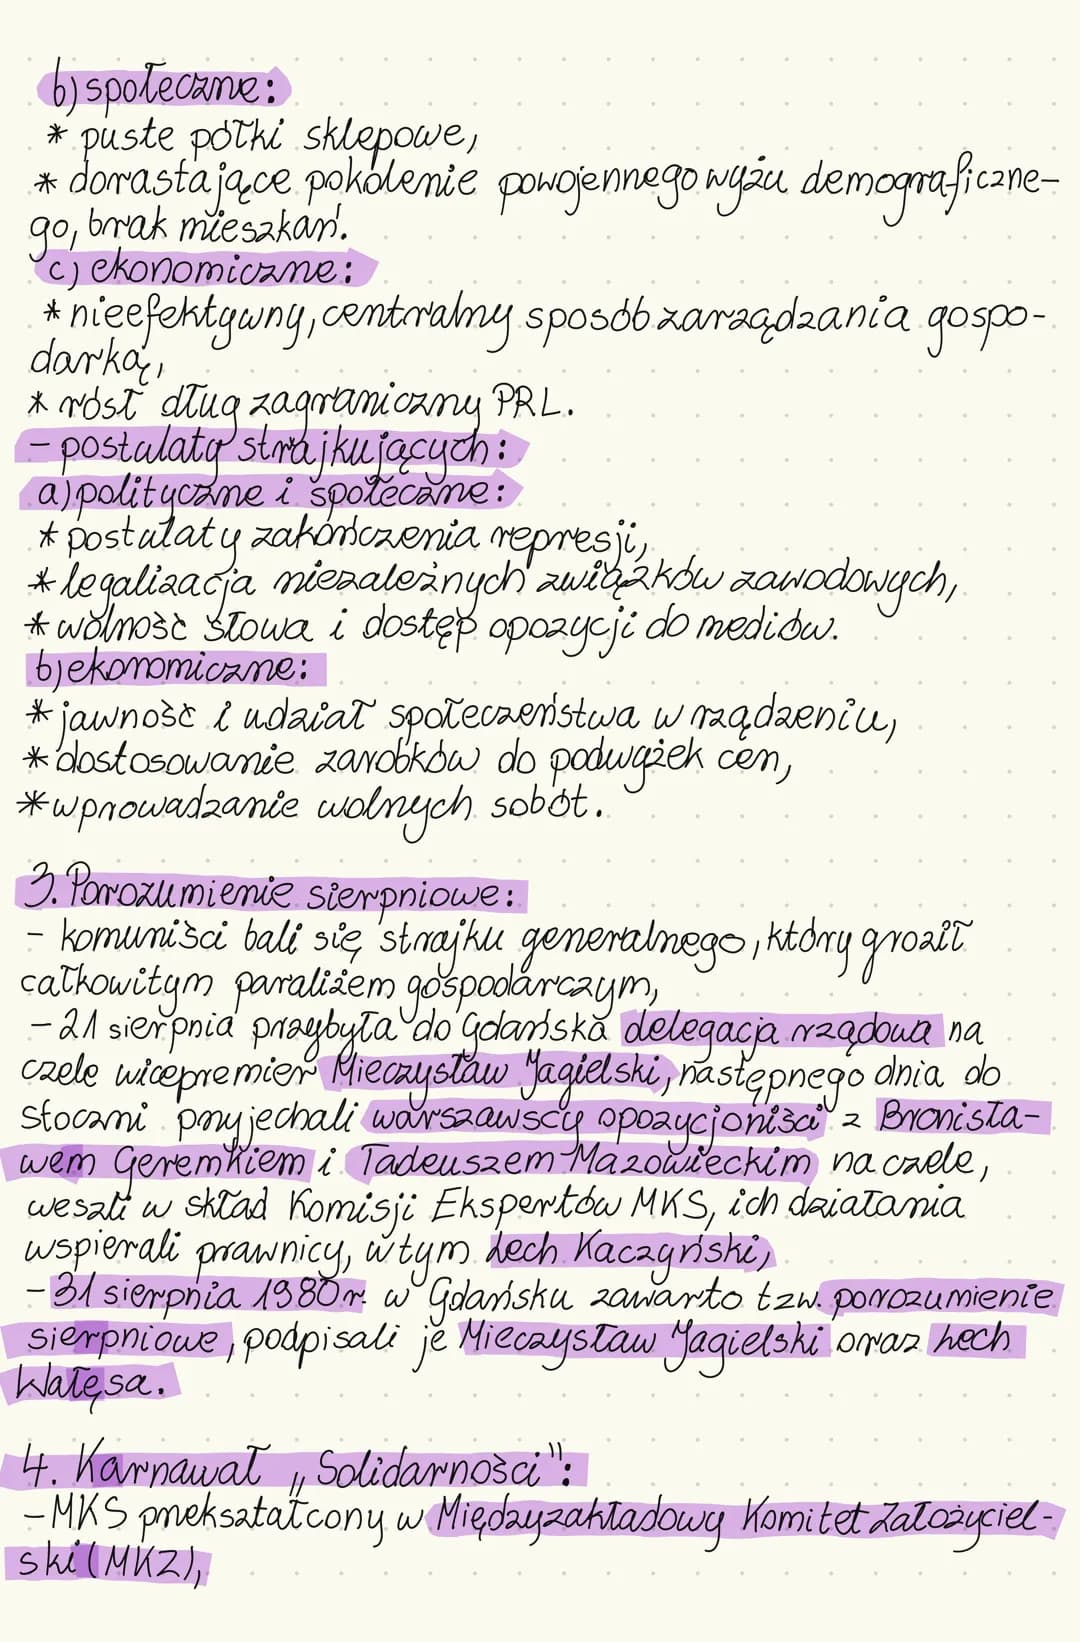 b) społeczne:
* puste półki sklepowe,
* dorastające pokolenie powojennego wyżu demograficzne-
go, brak mieszkań.
c) ekonomiczne:
* nieefektywny, centralny sposób zarządzania gospo-
darką,
* rósł dług zagraniczny PRL.
- postulaty strajkujących:
a) polityczne i społeczne:
* postulaty zakończenia represji,
* legalizacja niezależnych związków zawodowych,
* wolność słowa i dostęp opozycji do mediów.
b) ekonomiczne:
* jawność i udział społeczeństwa w rządzeniu,
* dostosowanie zarobków do podwyżek cen,
* wprowadzanie wolnych sobót.
3. Porozumienie sierpniowe:
- komuniści bali się strajku generalnego, który groził
całkowitym paraliżem gospodarczym,
- 21 sierpnia przybyła do Gdańska delegacja rządowa na
czele wicepremier Mieczysław Jagielski, następnego dnia do
stoczni przyjechali warszawscy opozycjoniści z Bronisła-
wem Geremkiem i Tadeuszem Mazowieckim na czele,
weszli w skład Komisji Ekspertów MKS, ich działania
wspierali prawnicy, w tym Lech Kaczyński,
- 31 sierpnia 1980r. w Gdańsku zawarto tzw. porozumienie
sierpniowe, podpisali je Mieczysław Jagielski oraz Lech
Wałęsa.
4. Karnawał „Solidarności":
- MKS przekształcony w Międzyzakładowy Komitet Założyciel-
ski (MKZ),